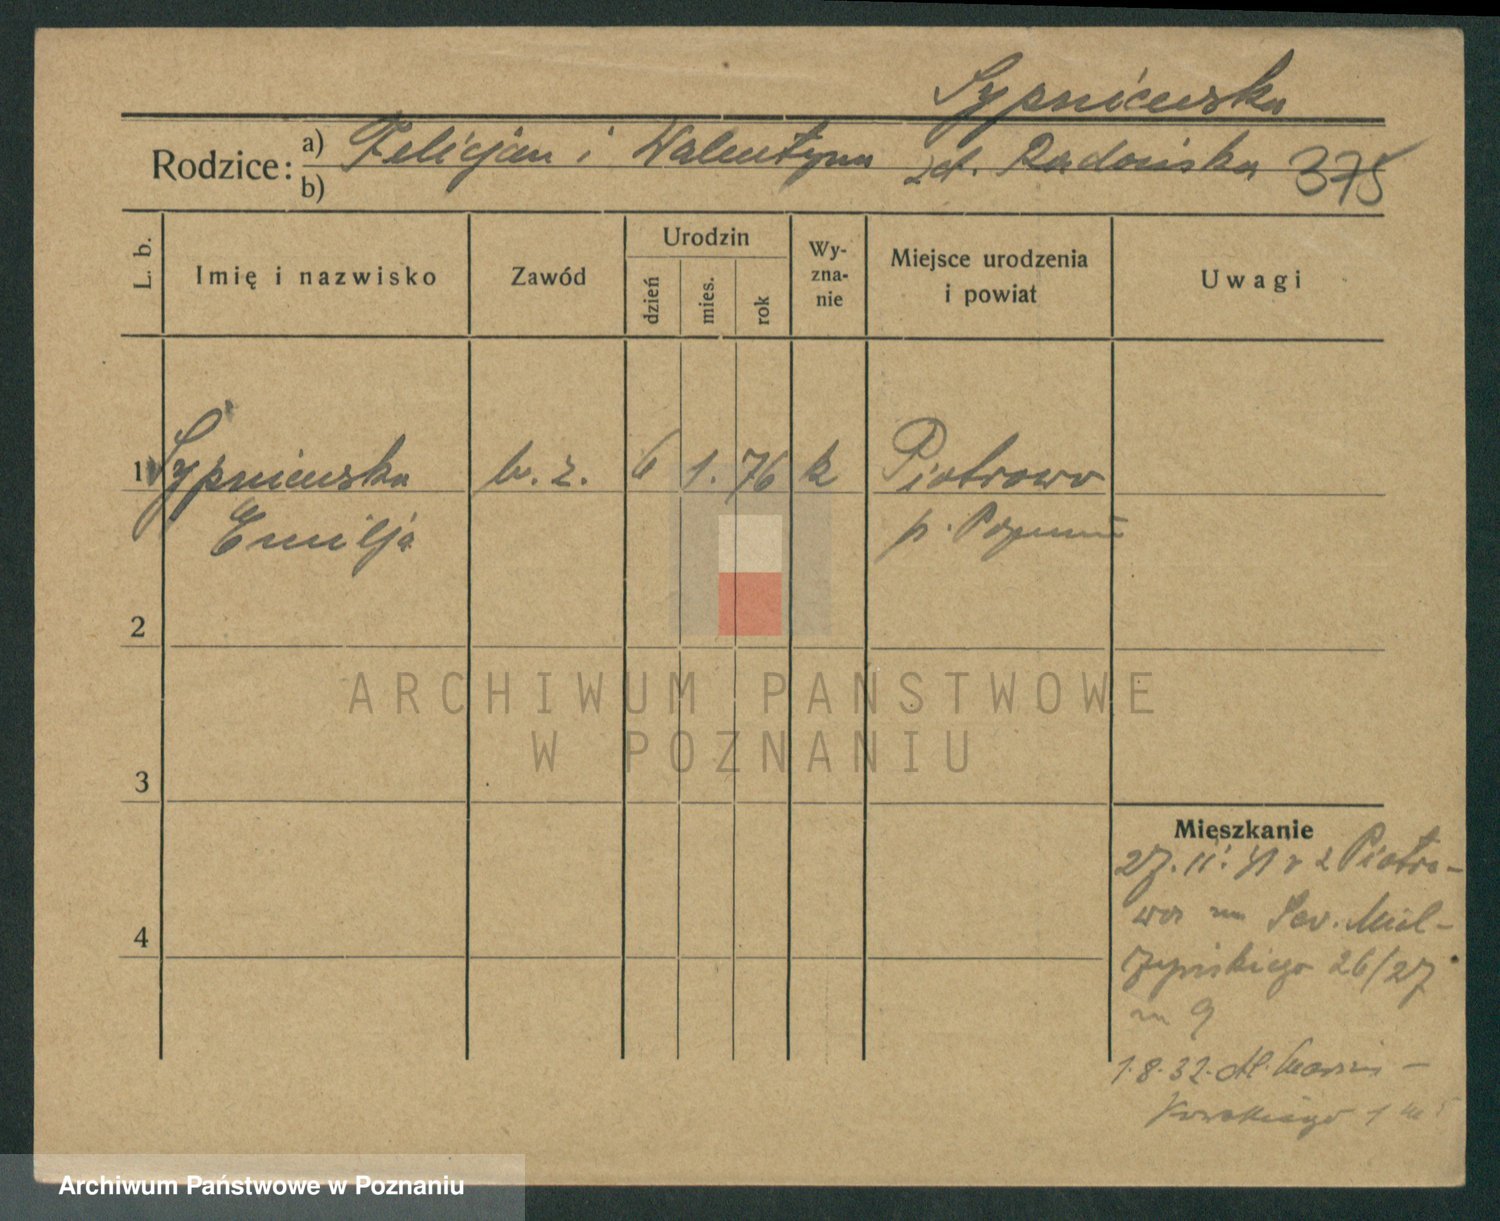 Sypniewska
Rodzice: a) Felicjan i Walentyna zd. Radońska 375
b)
L. b.
Imię i nazwisko
Zawód
Urodzin
dzień
mies.
rok
Wy-
zna-
nie
Miejsce urodzenia
i powiat
Uwagi
1 Sypniewska b. z. 6 1. 76 k Piotrowo
Emilja p. Poznań
2
ARCHIWUM PAŃSTWOWE
W POZNANIU
3
Mieszkanie
27. 11. z Piotro-
wa na Sew. Miel-
żyńskiego 26/27
m 9
1. 8. 32. Marcin-
kowskiego 1 m 5
4
Archiwum Państwowe w Poznaniu